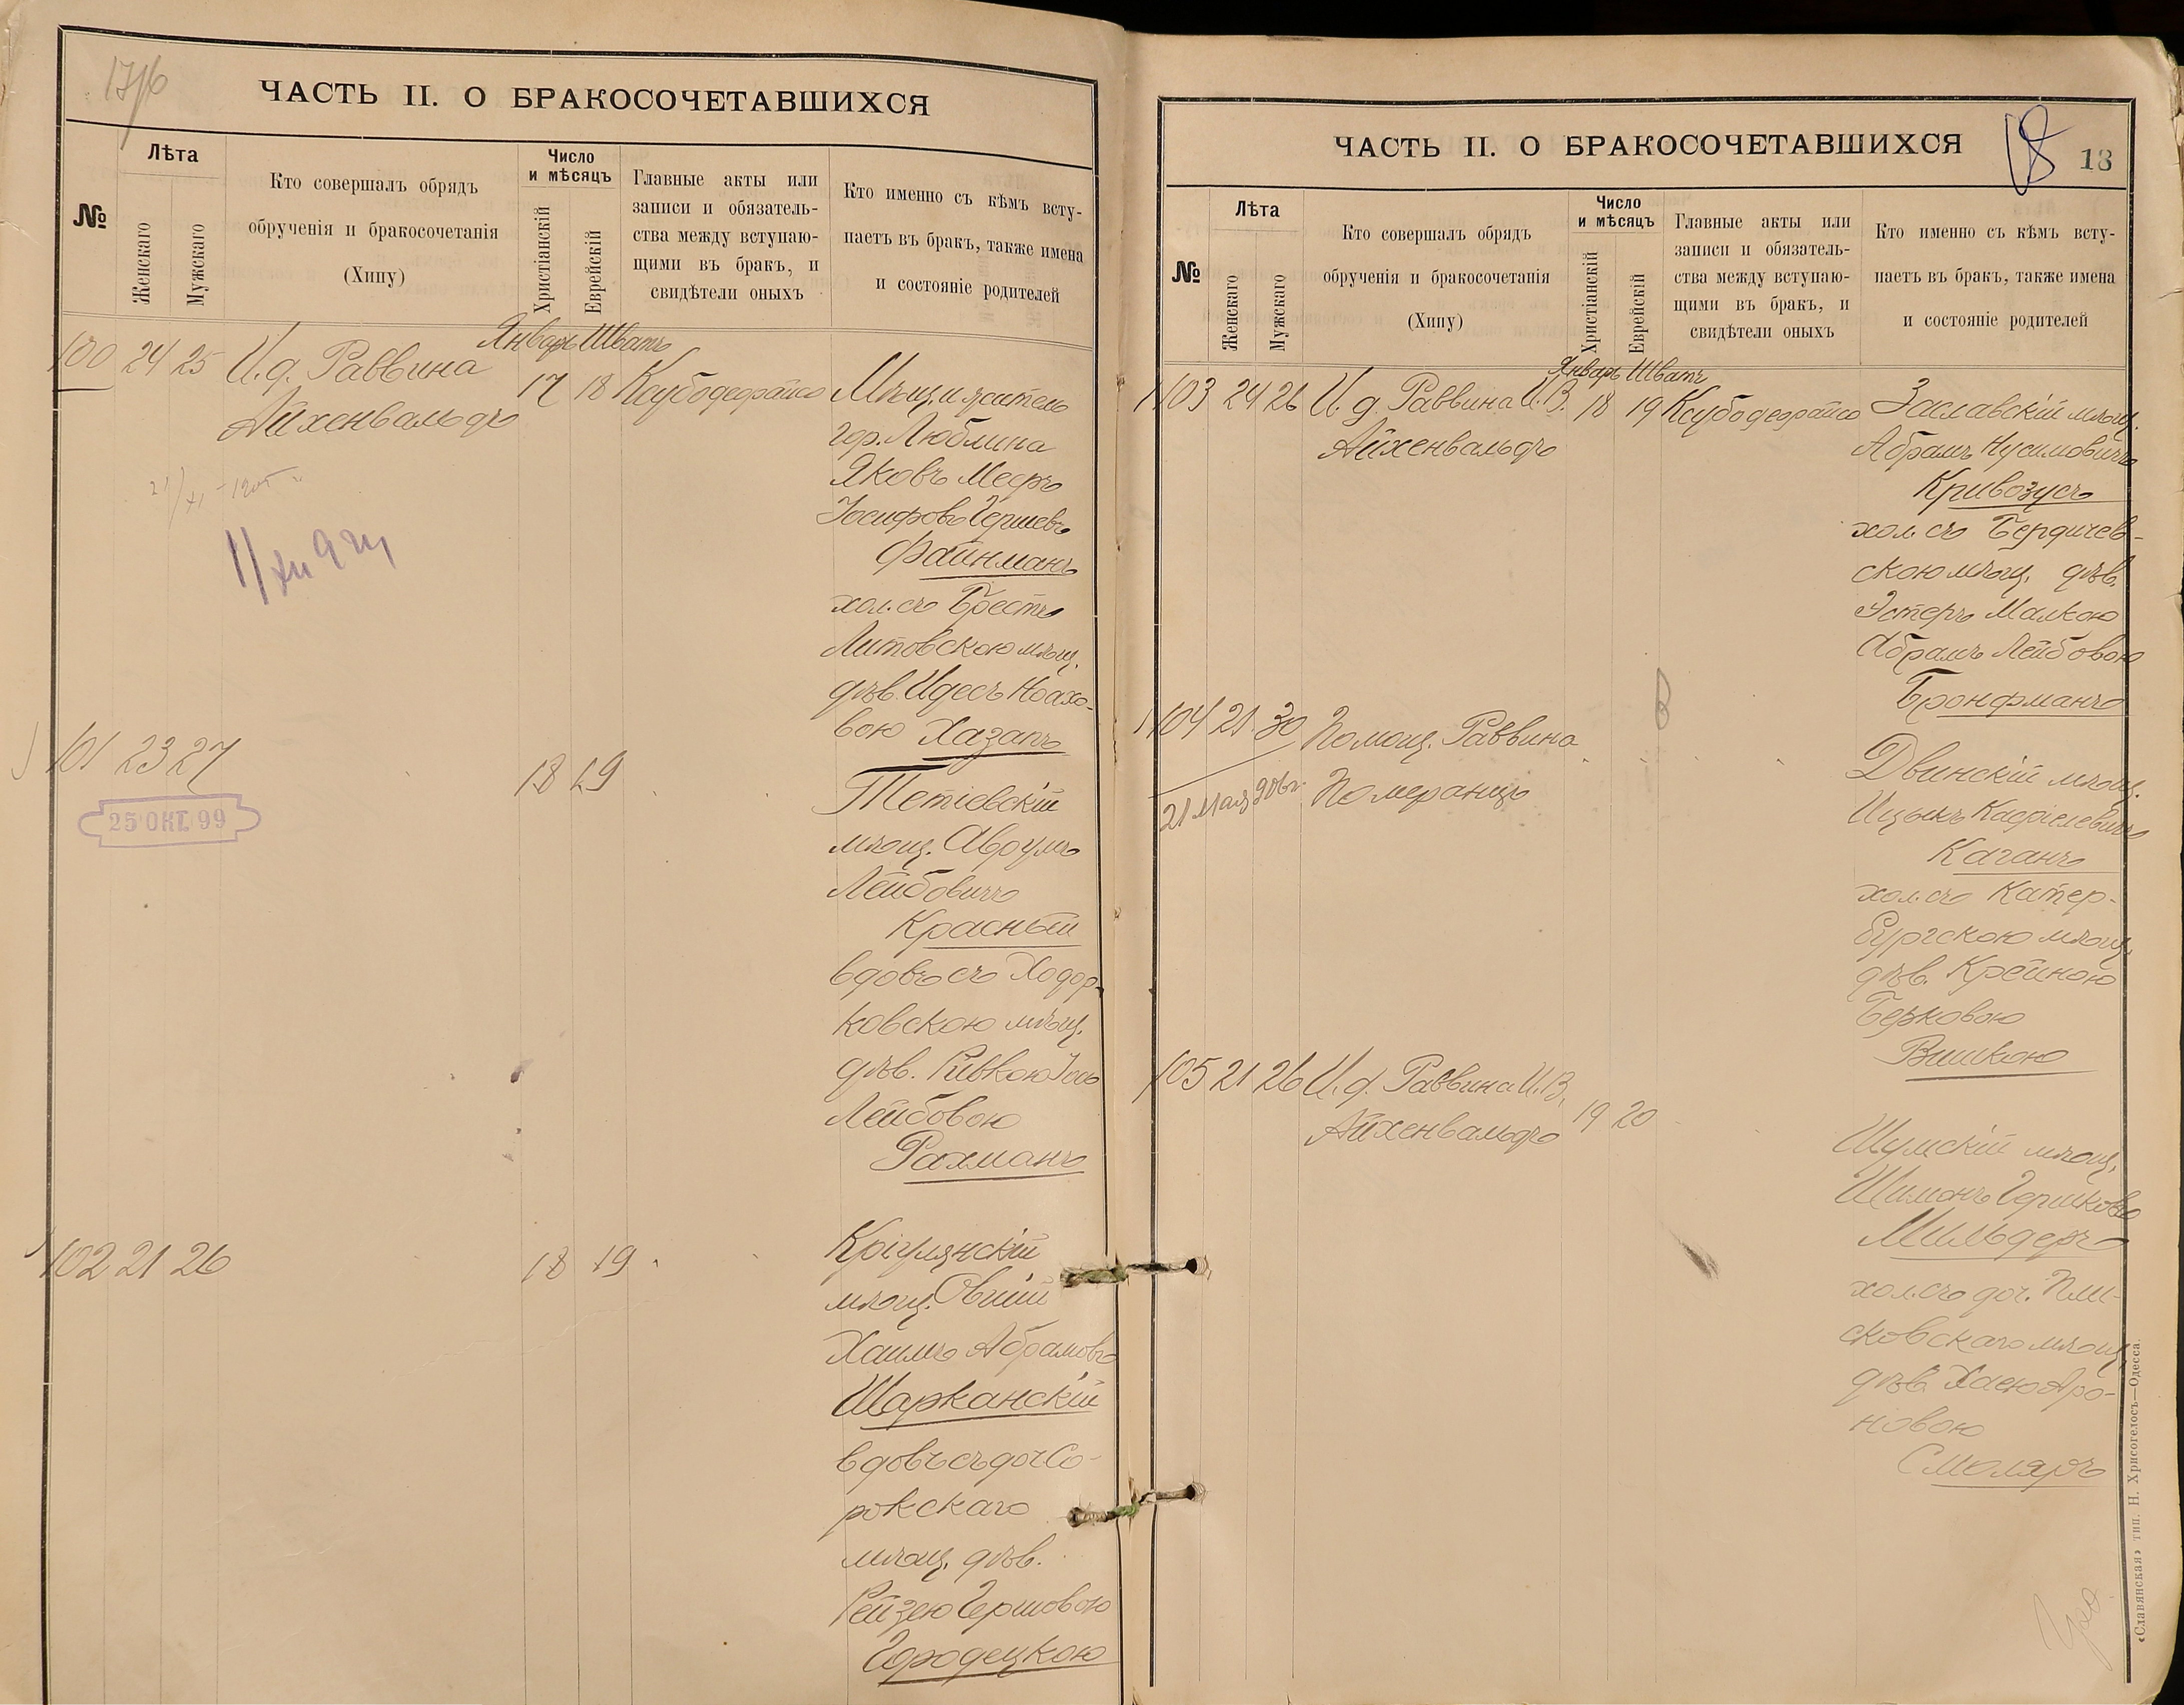 ЧАСТЬ II. О БРАКОСОЧЕТАВШИХСЯ
№
Лѣта
Женскаго
Мужскаго
Кто совершалъ обрядъ
обрученія и бракосочетанія
(Хипу)
Число
и мѣсяцъ
Христіанскій
Еврейскій
Главные акты или
записи и обязатель-
ства между вступаю-
щими въ бракъ, и
свидѣтели оныхъ
Кто именно съ кѣмъ всту-
паетъ въ бракъ, также имена
и состояніе родителей
Январь Шватъ
100 24 25 И. д. Раввина
Айхенвальдъ
17 18 Ксубодеорайсо
Мѣщ. и житель
гор. Люблина
Яковъ Мееръ
Іосифовъ Гершевъ
Файнманъ
хол. съ Брестъ
Литовскою мѣщ.
дѣв. Идесъ Ноахо-
вою Хазанъ
101 23 27
25 ОКТ. 99
18 19
Тетіевскій
мѣщ. Аврумъ
Лейбовичъ
Красный
вдовъ съ Ходор-
ковскою мѣщ.
дѣв. Ривкою Іось
Лейбовою
Рахманъ
102 21 26
18 19
Кріулянскій
мѣщ. Овшій
Хаимъ Абрамовъ
Шарканскій
вдовъ съ доч. Со-
рокскаго
мѣщ. дѣв.
Рейзею Гершовою
Городецкою
ЧАСТЬ II. О БРАКОСОЧЕТАВШИХСЯ
18
18
№
Лѣта
Женскаго
Мужскаго
Кто совершалъ обрядъ
обрученія и бракосочетанія
(Хипу)
Число
и мѣсяцъ
Христіанскій
Еврейскій
Главные акты или
записи и обязатель-
ства между вступаю-
щими въ бракъ, и
свидѣтели оныхъ
Кто именно съ кѣмъ всту-
паетъ въ бракъ, также имена
и состояніе родителей
Январь Шватъ
103 24 26 И. д. Раввина И. В.
Айхенвальдъ
18 19 Ксубодеорайсо
Заславскій мѣщ.
Абрамъ Нусимовичъ
Кривозусъ
хол. съ Бердичев-
скою мѣщ. дѣв.
Эстеръ Малкою
Абрамъ Лейбовою
Бронфманъ
104 21 30 Помощ. Раввина
Померанцъ
Двинскій мѣщ.
Ицыкъ Кафріелевичъ
Каганъ
хол. съ Катер-
бургскою мѣщ.
дѣв. Крейною
Берковою
Вишкою
105 21 26 И. д. Раввина И. В.
Айхенвальдъ
19 20
Шумскій мѣщ.
Шимонъ Гершковъ
Мильдеръ
хол. съ доч. Пли-
сковскаго мѣщ.
дѣв. Хаею Аро-
новою
Смоляръ
«Славянская» тип. Н. Хрисогелосъ—Одесса.